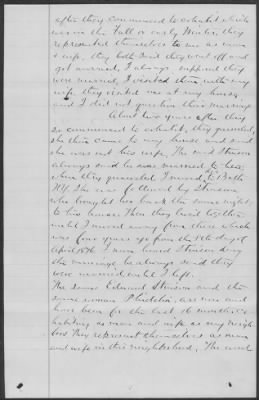 after they commenced to cohabit which
was in the Fall or early Winter, they
represented themselves to me as man
& wife, they both said they went off and
got married, I always supposed they
were married, I visited them with my
wife they visited me at my house
and I did not question their marriage
About two years after they
so commenced to cohabit, they quarreled,
she then came to my house and said
she was not his wife. The said Stinson
always said he was married to her,
when they quarreled I moved to Bath
NY. She was followed by Stinson
who brought her back the same night,
to his house. Then they lived together
until I moved away from there which
was four years ago from the 18th day of
April 1876. I never heard Stinson deny
the marriage he always said they
were married until I left.
The same Edward Stinson and the
same woman Phidelia are now and
have been for the last 18 months co-
habiting as man and wife as my neigh-
bors they represent themselves as man
and wife in this neighborhood, The said